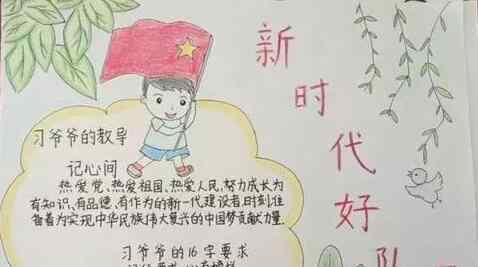 新时代好队
习爷爷的教导
记心间
热爱党、热爱祖国、热爱人民,努力成长为
有知识、有品德、有作为的新一代建设者,时刻准
备着为实现中华民族伟大复兴的中国梦贡献力量.
习爷爷的16字要求